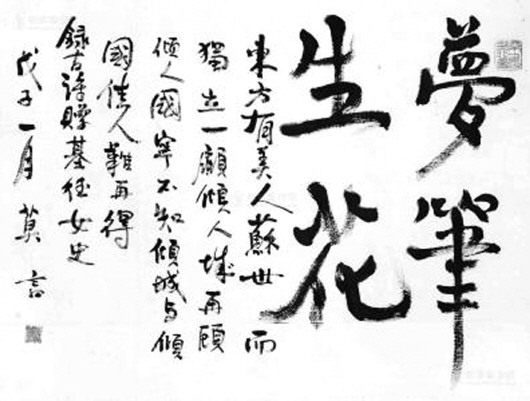 夢筆
生花
東方有美人蘇世而
獨立一顧傾人城再顧
傾人國寧不知傾城与傾
國佳人難再得
錄古詩贈基任女史
戊子一月 莫言